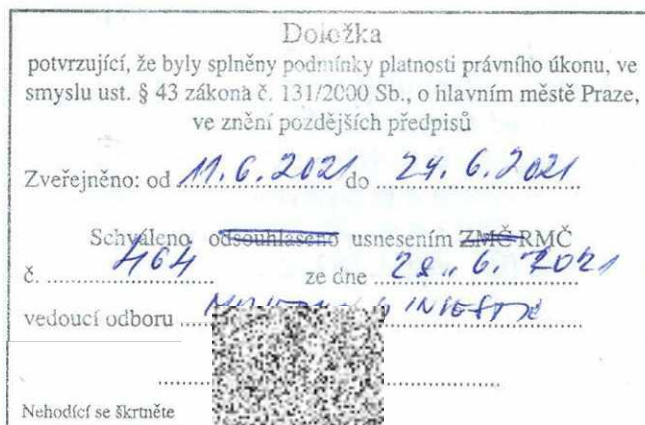 Doložka
potvrzující, že byly splněny podmínky platnosti právního úkonu, ve
smyslu ust. § 43 zákona č. 131/2000 Sb., o hlavním městě Praze,
ve znění pozdějších předpisů
Zveřejněno: od 11.6.2021 do 24.6.2021
Schváleno odsouhlaseno usnesením ZMČ RMČ
č. 464 ze dne 28. 6. 2021
vedoucí odboru
Nehodící se škrtněte